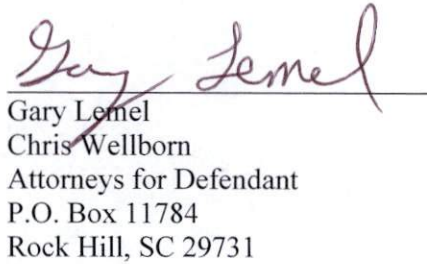 Gary Lemel
Gary Lemel
Chris Wellborn
Attorneys for Defendant
P.O. Box 11784
Rock Hill, SC 29731